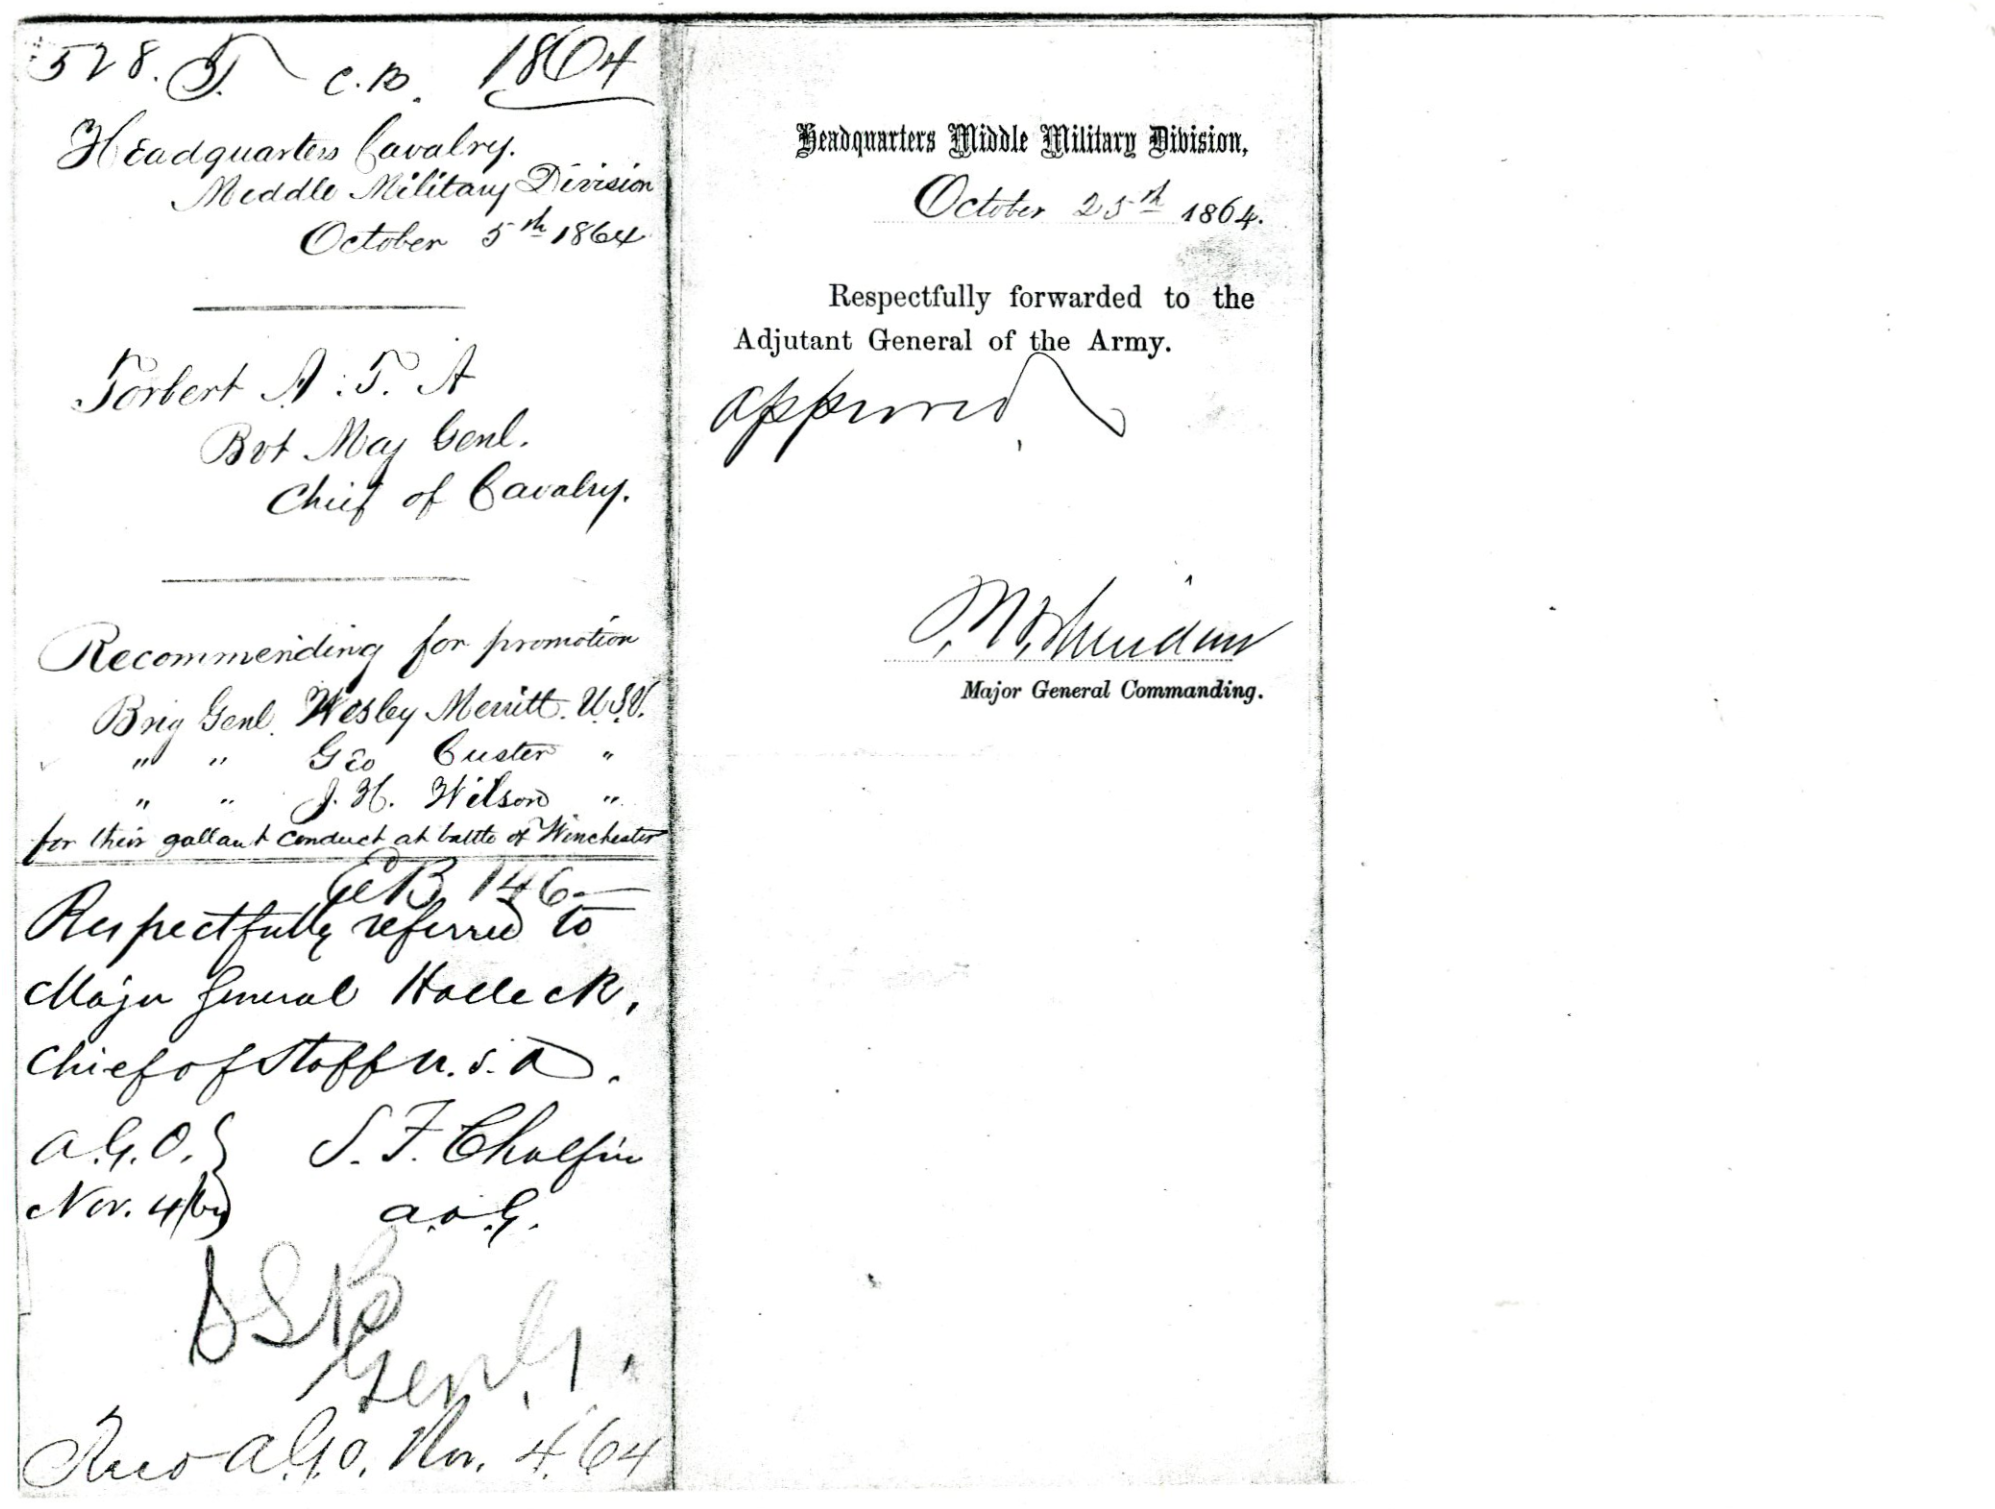 528. T. C.B. 1864
Headquarters Cavalry.
Middle Military Division
October 5th 1864
Torbert A. T. A
Bvt Maj Genl.
Chief of Cavalry.
Recommending for promotion
Brig Genl. Wesley Merritt. U.S.V.
" " Geo Custer "
" " J. H. Wilson "
for their gallant conduct at battle of Winchester
146
Respectfully referred to
Major General Halleck,
Chief of Staff U.S.A.
A.G.O. S. F. Chalfin
Nov. 4/64 A.A.G.
Genl.
Recd A.G.O. Nov. 4. 64
Headquarters Middle Military Division,
October 25th 1864.
Respectfully forwarded to the
Adjutant General of the Army.
approved
P. H. Sheridan
Major General Commanding.